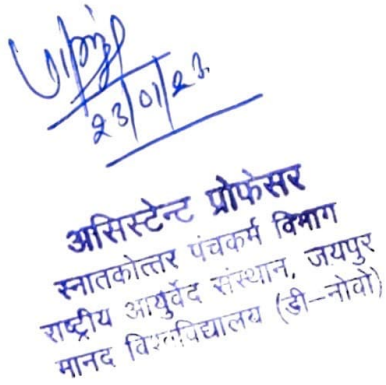 23/01/23
असिस्टेन्ट प्रोफेसर
स्नातकोत्तर पंचकर्म विभाग
राष्ट्रीय आयुर्वेद संस्थान, जयपुर
मानद विश्वविद्यालय (डी-नोवो)